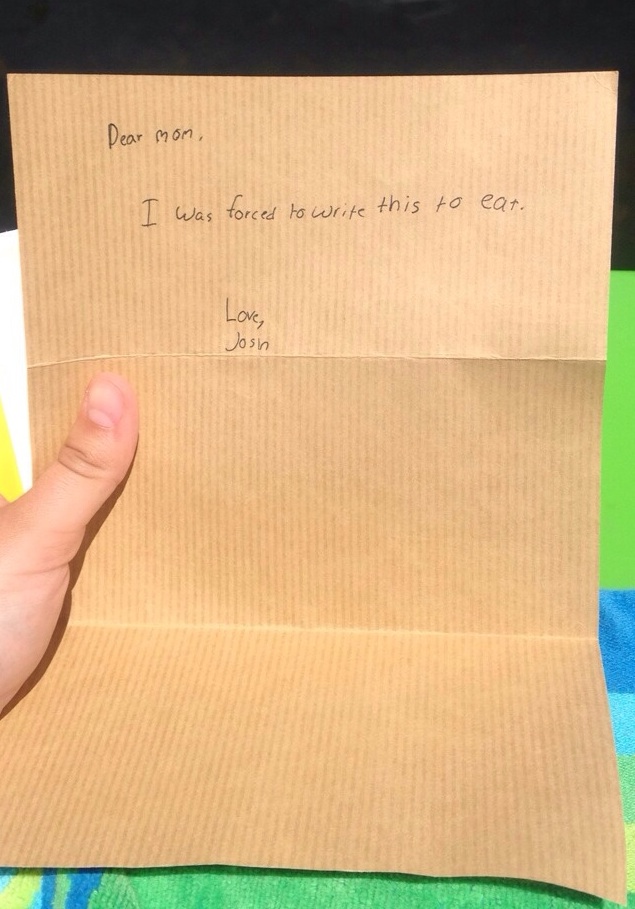 Dear mom,
I was forced to write this to eat.
Love,
Josh